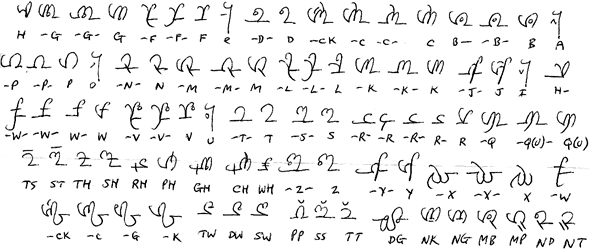 H -G -G- G -F -F- F E -D- D -CK -C C- C B- -B- B A
-P -P- P O -N- N -M -M- M -L -L- L -K -K- K -J- J I H-
-W- -W- W W -V -V- V U -T- T -S- S -R- -R- -R- R -Q -Q(U)- Q(U)
TS ST TH SH RH PH GH CH WH -Z- Z -Y- Y -X -X- X -W
-CK -C -G -K TW DW SW PP SS TT DG NK NG MB MP ND NT